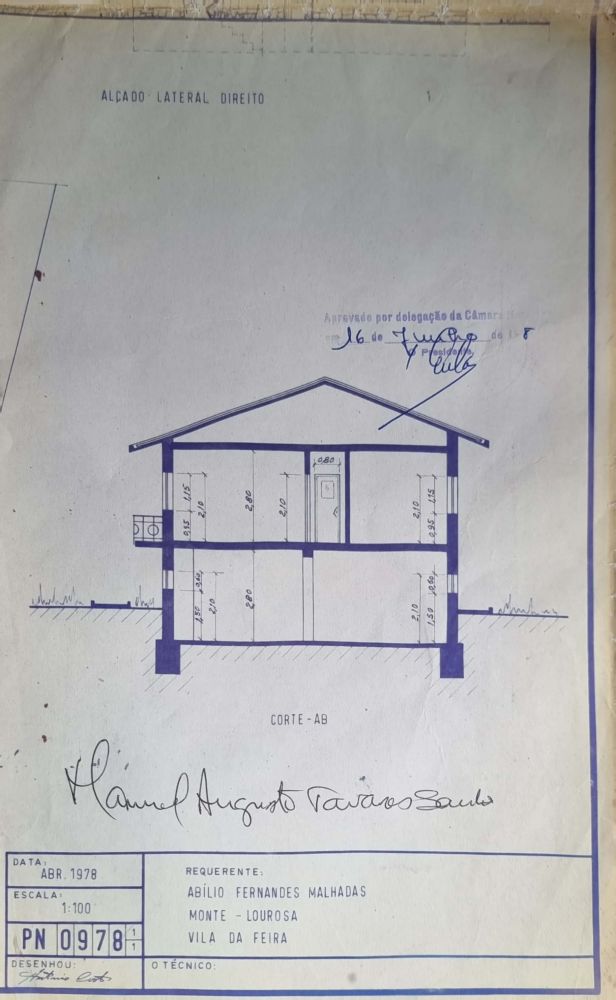 ALÇADO LATERAL DIREITO
Aprovado por delegação da Câmara
em 16 de Junho de 8
O Presidente,
0,80
1,15
2,10
2,80
2,10
2,10
1,15
0,95
0,95
0,60
1,50
2,10
2,80
2,10
0,60
1,50
CORTE-AB
Manuel Augusto Tavares
DATA:
ABR. 1978
ESCALA:
1:100
PN 0978 1/1
DESENHOU:
REQUERENTE:
ABÍLIO FERNANDES MALHADAS
MONTE - LOUROSA
VILA DA FEIRA
O TÉCNICO: